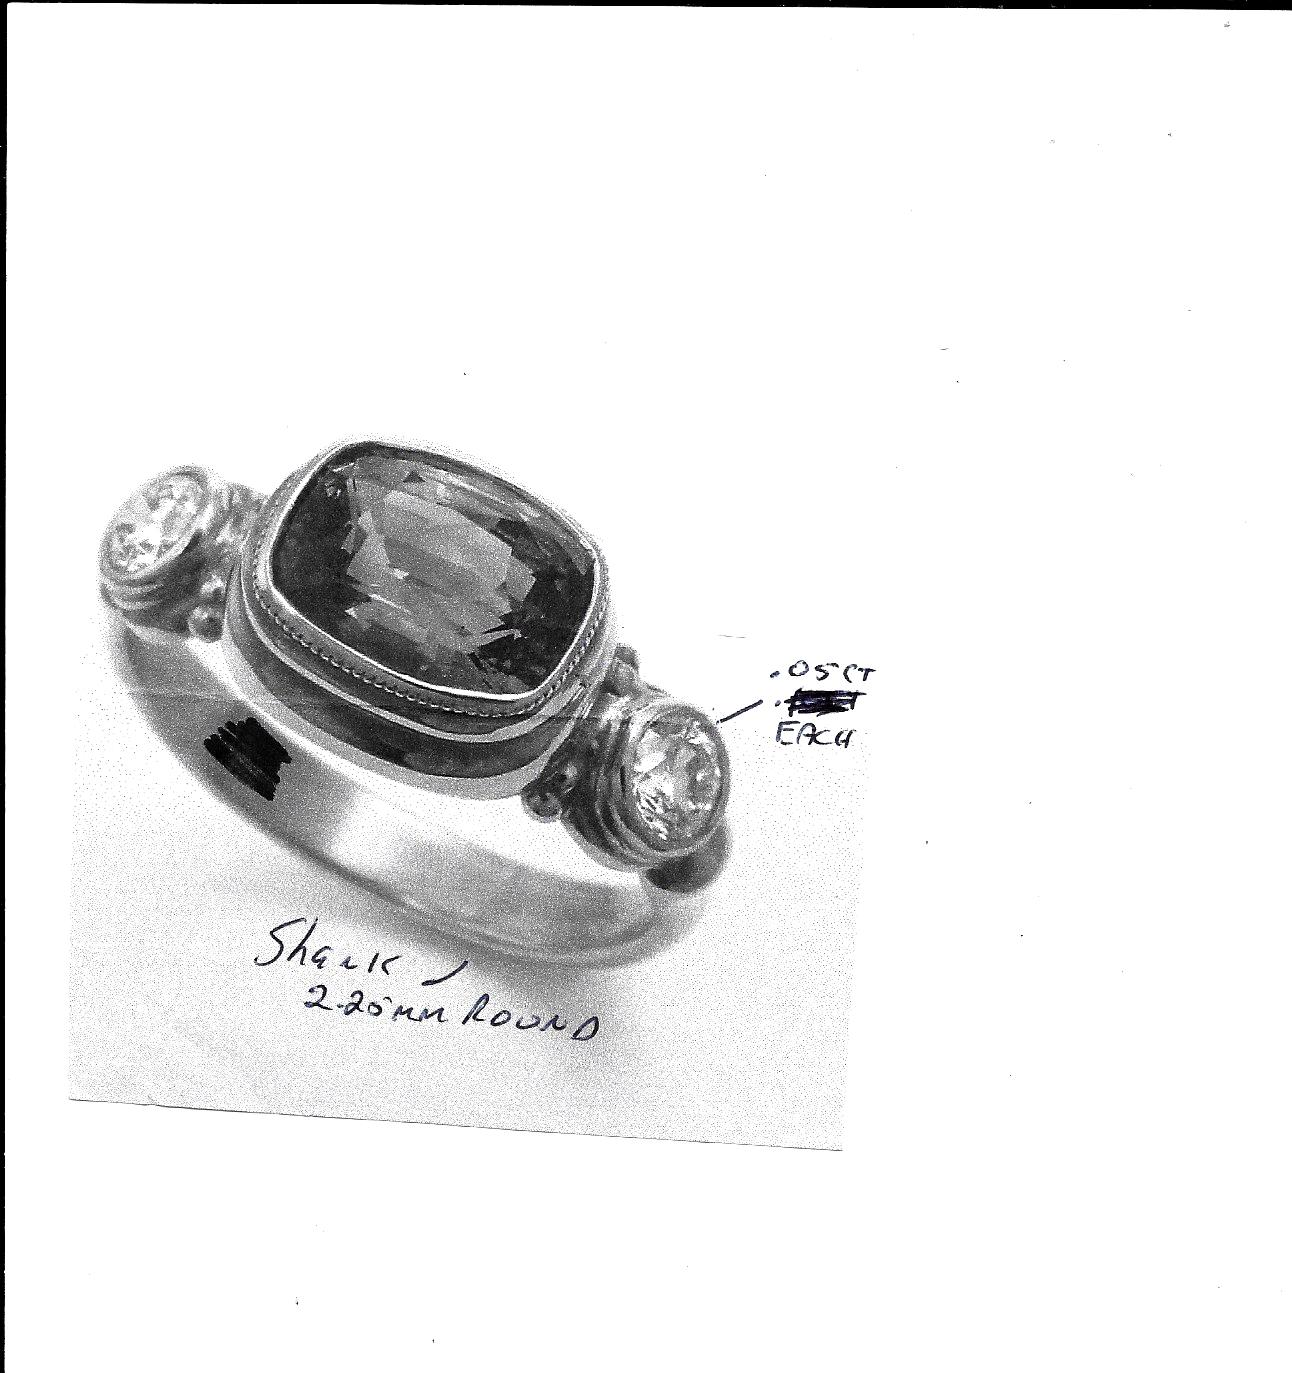 .05CT
EACH
Shank
2.25MM ROUND